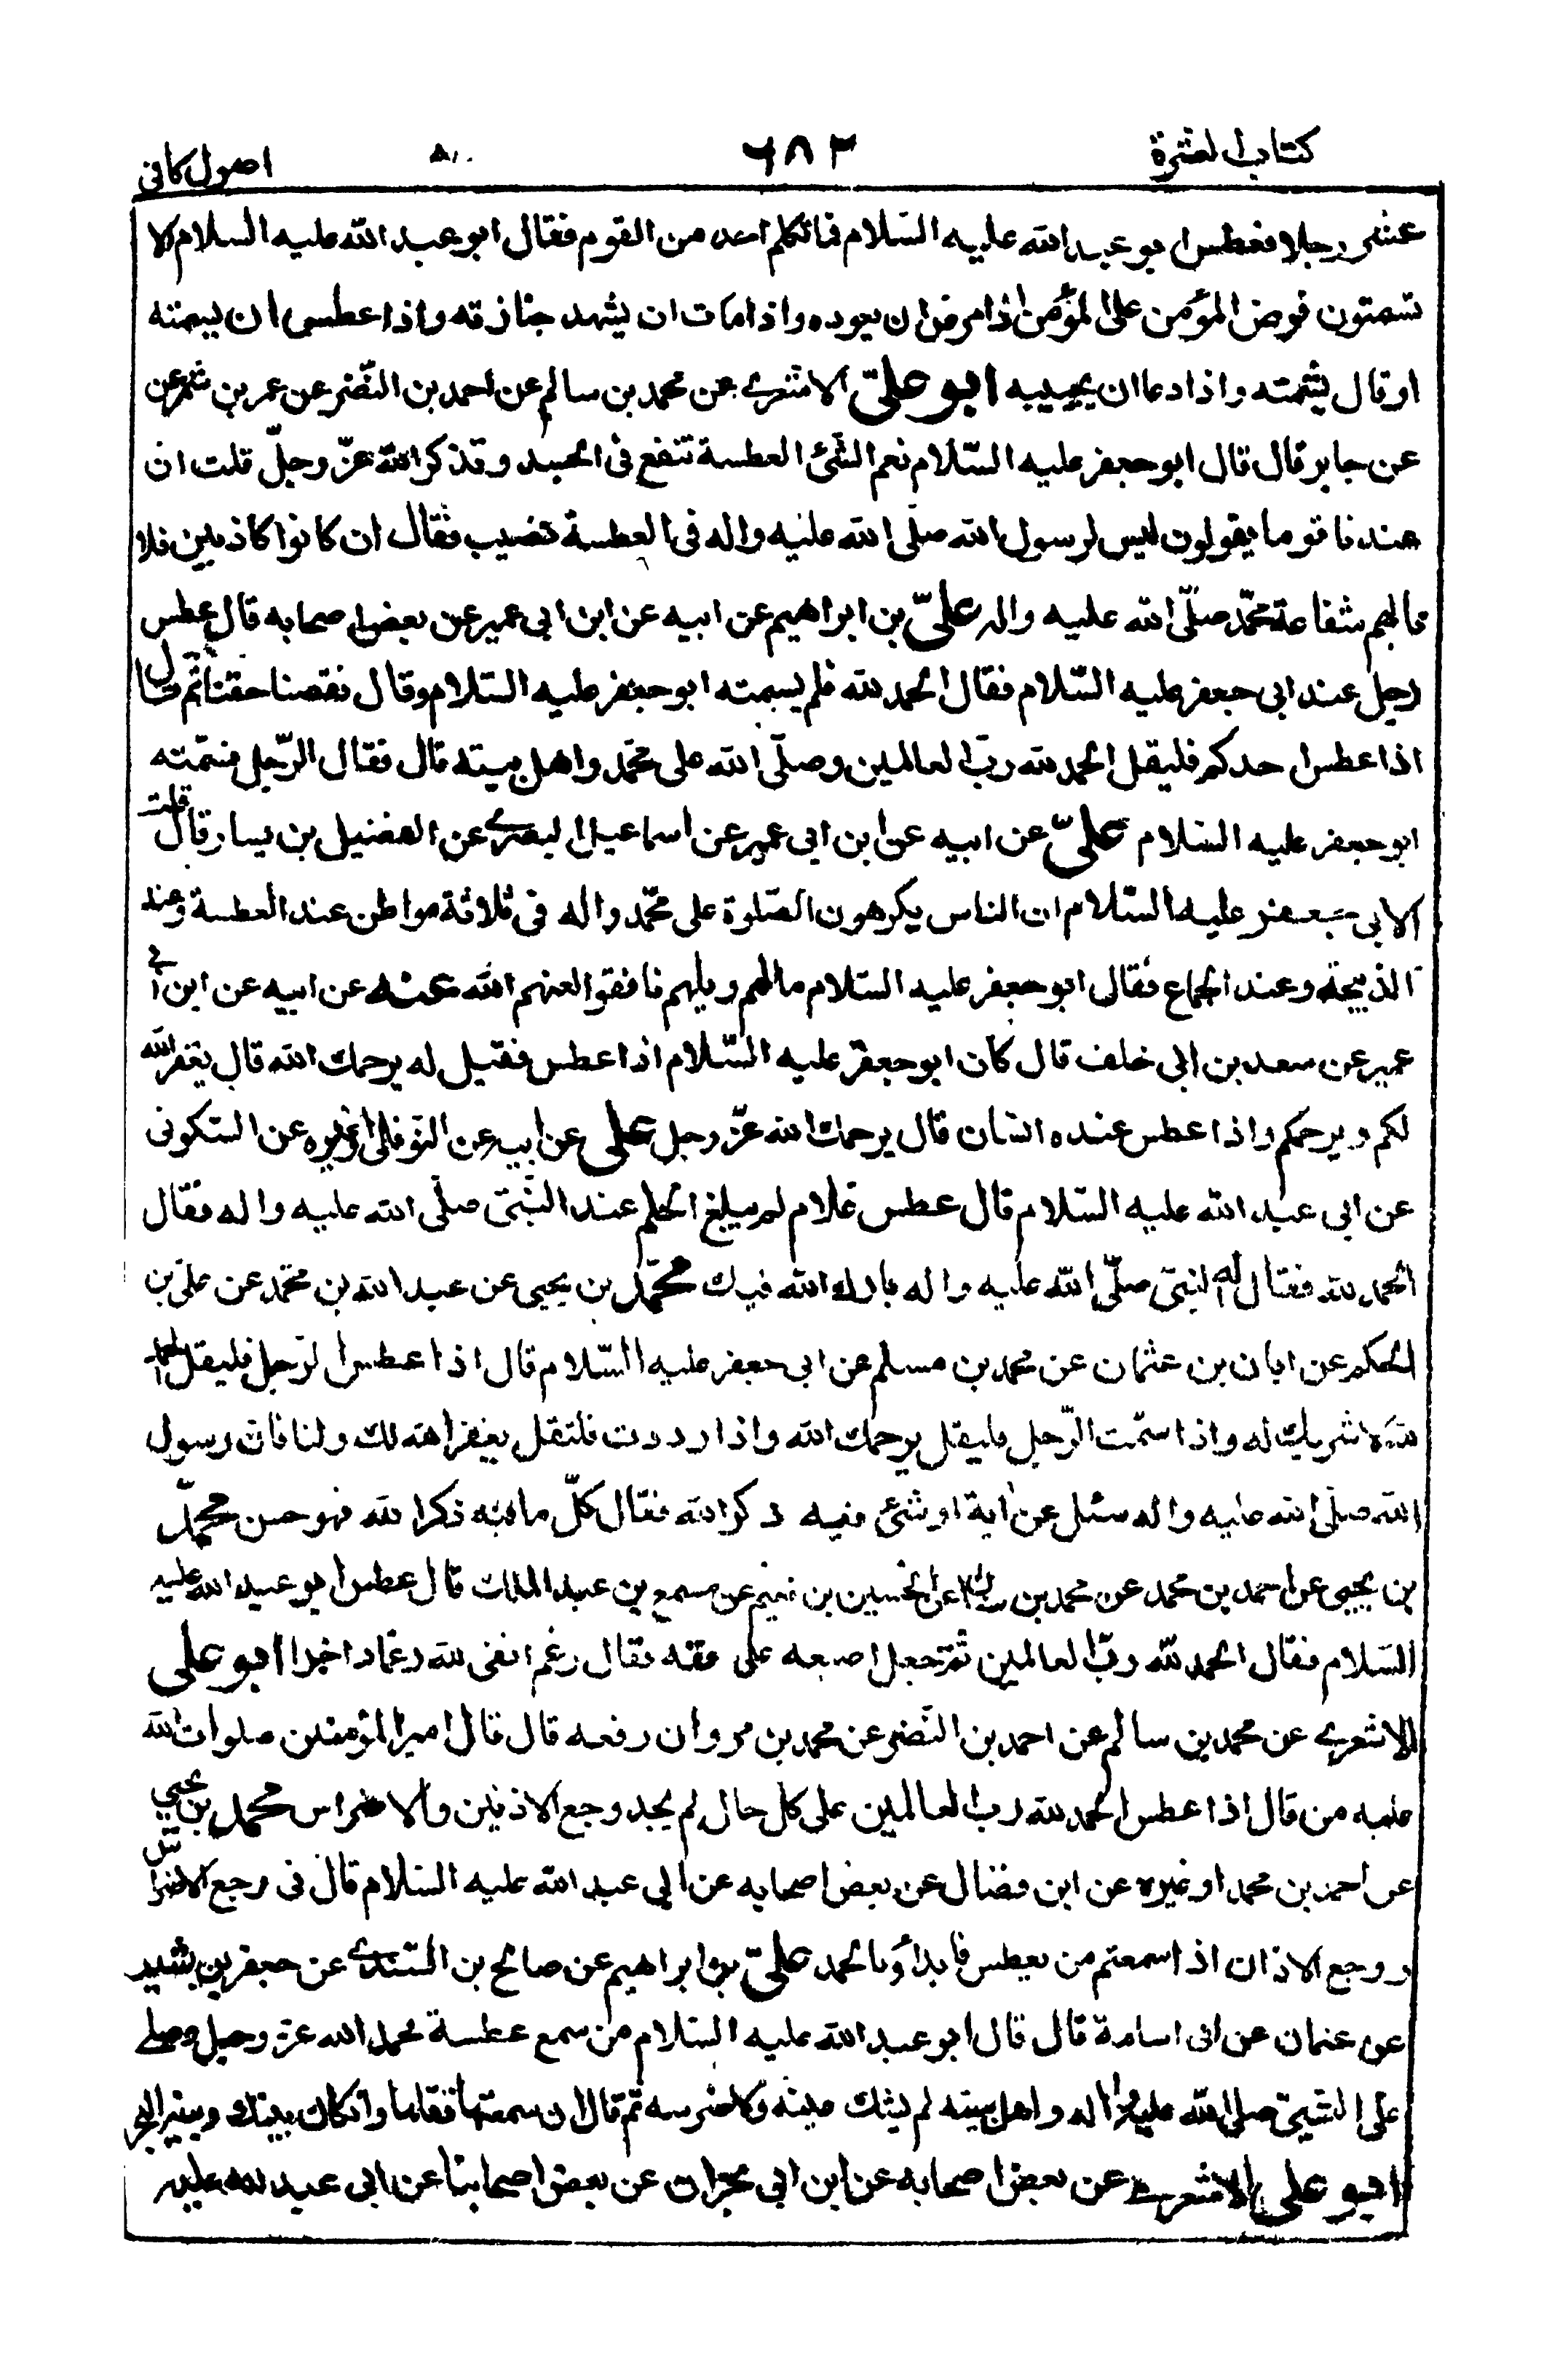 كتاب العشرة ٦٨٣ اصول كافى
رجلا فعطس ابو عبد الله عليه السّلام فما تكلم احد من القوم فقال ابو عبد الله عليه السلام الا
تسمتون فرض المؤمن على المؤمن اذا مرض ان يعوده واذا مات ان يشهد جنازته واذا عطس ان يسمته
او قال يشمته واذا دعا ان يجيبه ابو علىّ الاشعرى عن محمد بن سالم عن احمد بن النّضر عن عمر بن شمر
عن جابر قال قال ابو جعفر عليه السّلام نعم الشّئ العطسة تنفع فى الجسد وتذكر الله عزّ وجلّ قلت ان
عندنا قوما يقولون ليس لرسول الله صلّى الله عليه واله فى العطسة نصيب فقال ان كانوا كاذبين فلا
نالهم شفاعة محمّد صلّى الله عليه واله علىّ بن ابراهيم عن ابيه عن ابن ابى عمير عن بعض اصحابه قال عطس
رجل عند ابى جعفر عليه السّلام فقال الحمد لله فلم يسمته ابو جعفر عليه السّلام وقال نقصنا حقنا ثم قال
اذا عطس احدكم فليقل الحمد لله ربّ العالمين وصلّى الله على محمّد واهل بيته قال فقال الرّجل فسمّته
ابو جعفر عليه السّلام علىّ عن ابيه عن ابن ابى عمير عن اسماعيل البصرى عن الفضيل بن يسار قال قلت
لابى جعفر عليه السّلام ان الناس يكرهون الصّلوة على محمّد واله فى ثلاثة مواطن عند العطسة وعند
الذبيحة وعند الجماع فقال ابو جعفر عليه السّلام ما لهم ويلهم نافقوا لعنهم الله عنه عن ابيه عن ابن ابى
عمير عن سعد بن ابى خلف قال كان ابو جعفر عليه السّلام اذا عطس فقيل له يرحمك الله قال يغفر الله
لكم ويرحمكم واذا عطس عنده انسان قال يرحمك الله عزّ وجل على عن ابيه عن النّوفلى او غيره عن السّكونى
عن ابى عبد الله عليه السّلام قال عطس غلام لم يبلغ الحلم عند النّبىّ صلّى الله عليه واله فقال
الحمد لله فقال له النبىّ صلّى الله عليه واله بارك الله فيك محمّد بن يحيى عن عبد الله بن محمّد عن علىّ بن
الحكم عن ابان بن عثمان عن محمد بن مسلم عن ابى جعفر عليه السّلام قال اذا عطس الرّجل فليقل الحمد
لله لا شريك له واذا سمّت الرّجل فليقل يرحمك الله واذا رددت فلتقل يغفر الله لك ولنا فان رسول
الله صلّى الله عليه واله سئل عن اية او شئ فيه ذكر الله فقال كلّ ما فيه ذكر الله فهو حسن محمّد
بن يحيى عن احمد بن محمد عن محمد بن عن الحسين بن نعيم عن مسمع بن عبد الملك قال عطس ابو عبد الله عليه
السّلام فقال الحمد لله ربّ العالمين ثم جعل اصبعه على فقال رغم انفى لله رغما داخرا ابو على
الاشعرى عن محمد بن سالم عن احمد بن النّضر عن محمد بن مروان رفعه قال قال امير المؤمنين صلوات الله
عليه من قال اذا عطس الحمد لله ربّ العالمين على كل حال لم يجد وجع الاذنين والاضراس محمد بن يحيى
عن احمد بن محمد او غيره عن ابن فضال عن بعض اصحابه عن ابى عبد الله عليه السّلام قال فى وجع الاضراس
ووجع الاذان اذا سمعتم من يعطس فابدأوه بالحمد علىّ بن ابراهيم عن صالح بن السّندى عن جعفر بن بشير
عن عثمان عن ابى اسامة قال قال ابو عبد الله عليه السّلام من سمع عطسة فحمد الله عزّ وجل وصلى
على النّبىّ صلى الله عليه واله واهل بيته لم يشك عينه ولا ضرسه ثم قال ان سمعتها فقلها وان كان بينك وبينه البحر
ابو على الاشعرى عن بعض اصحابه عن ابن ابى نجران عن بعض اصحابنا عن ابى عبد الله عليه